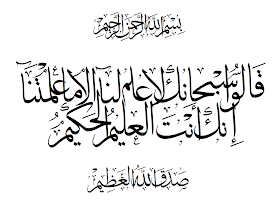 بسم الله الرحمن الرحيم
قالوا سبحانك لا علم لنا إلا ما علمتنا
إنك أنت العليم الحكيم
صدق الله العظيم